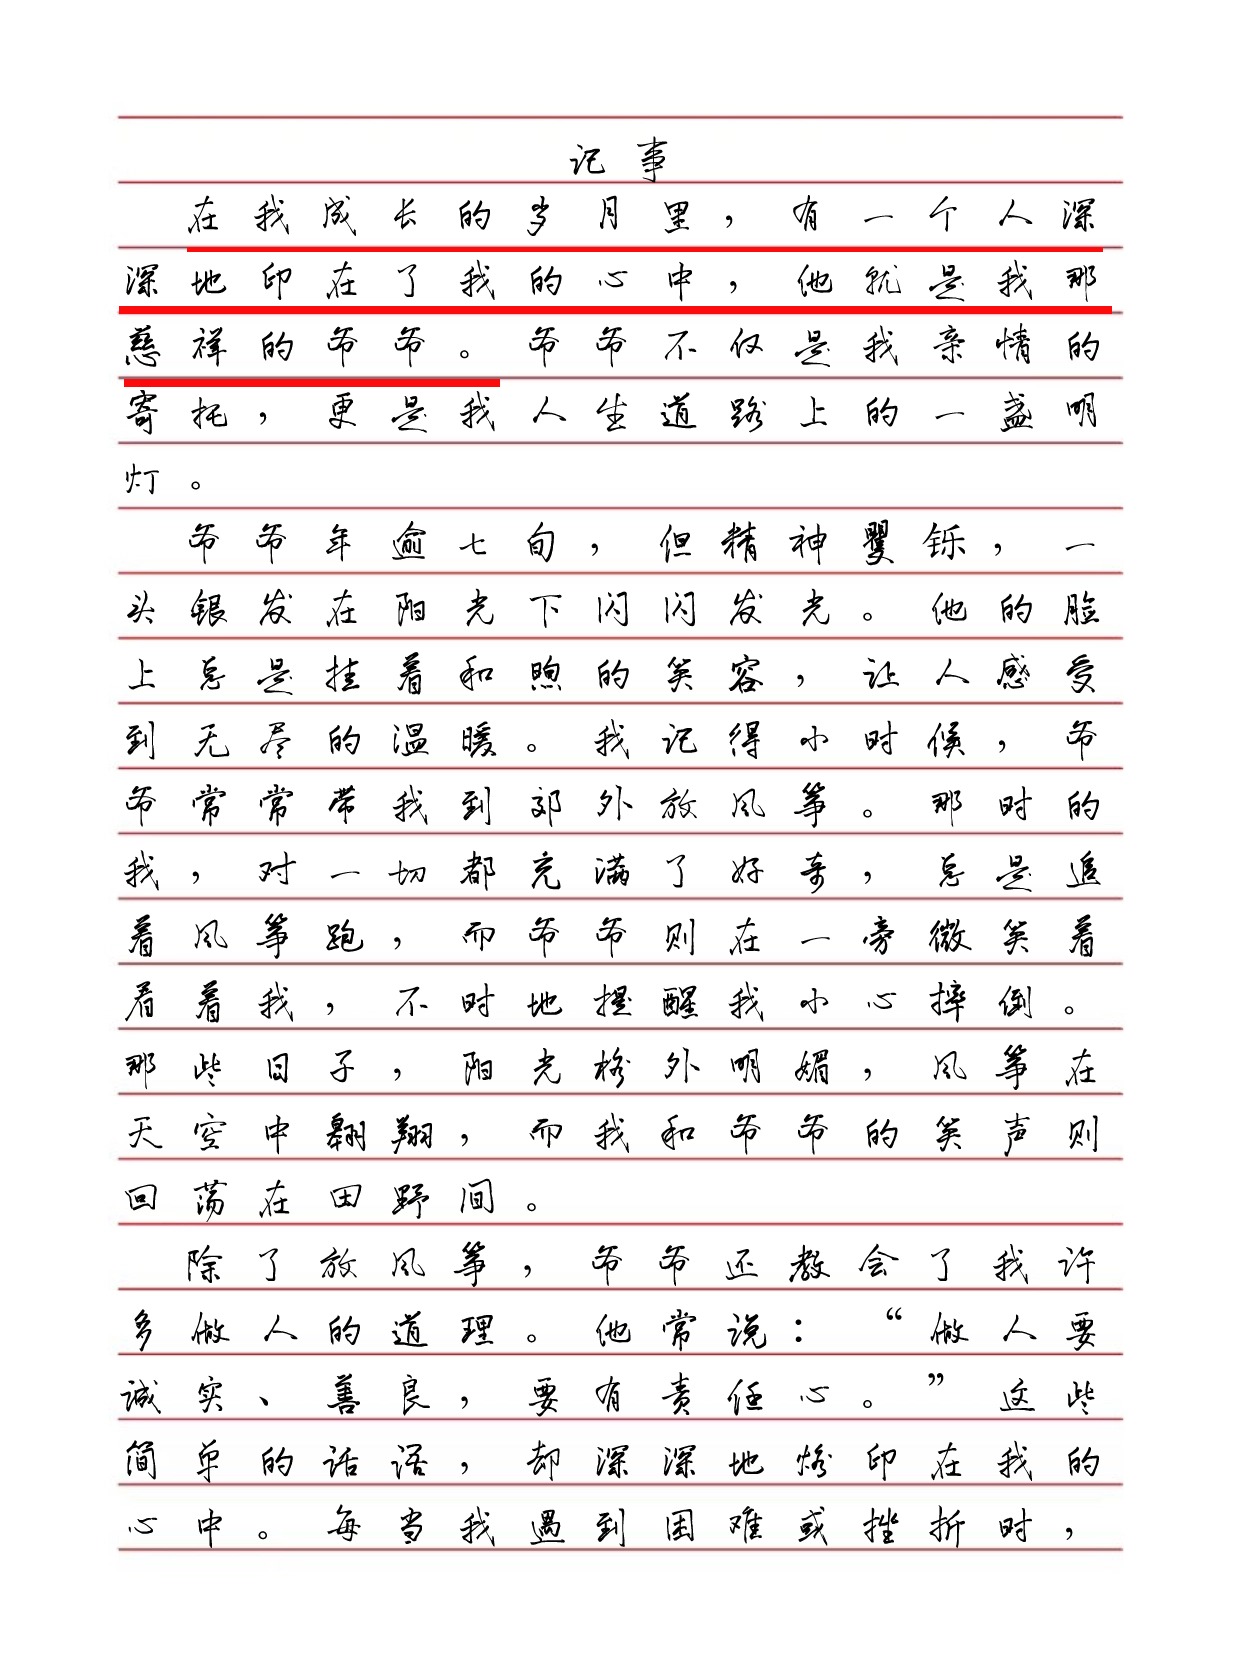 记事
在我成长的岁月里，有一个人深
深地印在了我的心中，他就是我那
慈祥的爷爷。爷爷不仅是我亲情的
寄托，更是我人生道路上的一盏明
灯。
爷爷年逾七旬，但精神矍铄，一
头银发在阳光下闪闪发光。他的脸
上总是挂着和煦的笑容，让人感受
到无尽的温暖。我记得小时候，爷
爷常常带我到郊外放风筝。那时的
我，对一切都充满了好奇，总是追
着风筝跑，而爷爷则在一旁微笑着
看着我，不时地提醒我小心摔倒。
那些日子，阳光格外明媚，风筝在
天空中翱翔，而我和爷爷的笑声则
回荡在田野间。
除了放风筝，爷爷还教会了我许
多做人的道理。他常说：“做人要
诚实、善良，要有责任心。”这些
简单的话语，却深深地烙印在我的
心中。每当我遇到困难或挫折时，